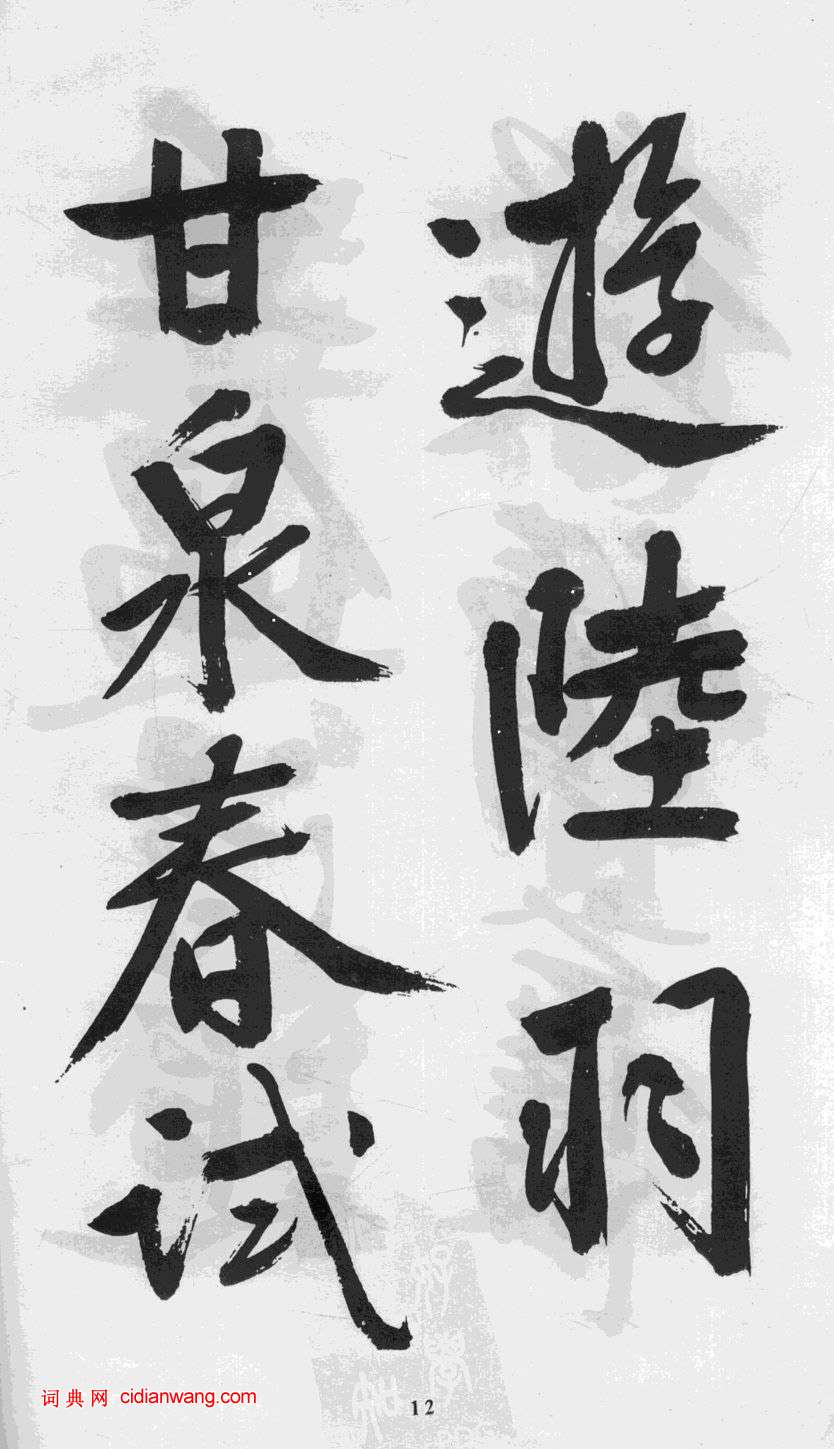 遊陸羽
甘泉春试
词典网 cidianwang.com
12